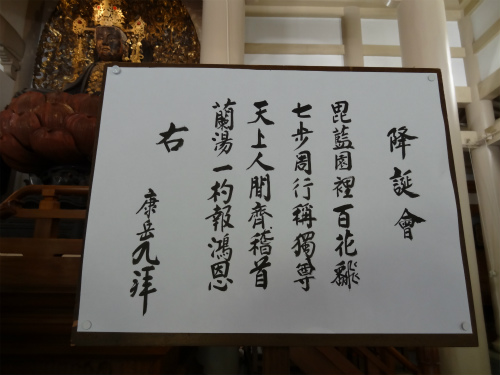 降誕會
毘藍園裡百花飜
七歩周行稱獨尊
天上人間齊稽首
蘭湯一杓報鴻恩
右
康岳九拜